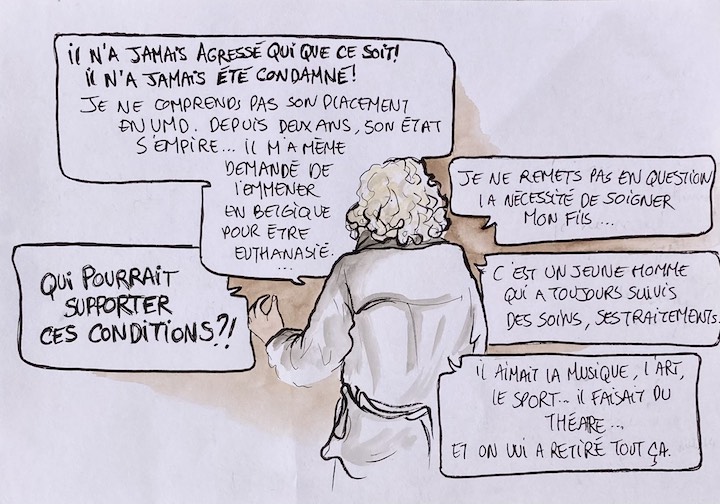 IL N'A JAMAIS AGRESSÉ QUI QUE CE SOIT!
IL N'A JAMAIS ÉTÉ CONDAMNÉ!
JE NE COMPRENDS PAS SON PLACEMENT
EN UMD. DEPUIS DEUX ANS, SON ÉTAT
S'EMPIRE... IL M'A MÊME
DEMANDÉ DE
L'EMMENER
EN BELGIQUE
POUR ÊTRE
EUTHANASIÉ.
...
JE NE REMETS PAS EN QUESTION
LA NÉCESSITÉ DE SOIGNER
MON FILS...
QUI POURRAIT
SUPPORTER
CES CONDITIONS?!
C'EST UN JEUNE HOMME
QUI A TOUJOURS SUIVIS
DES SOINS, SES TRAITEMENTS.
IL AIMAIT LA MUSIQUE, L'ART,
LE SPORT... IL FAISAIT DU
THÉARE...
ET ON LUI A RETIRÉ TOUT ÇA.